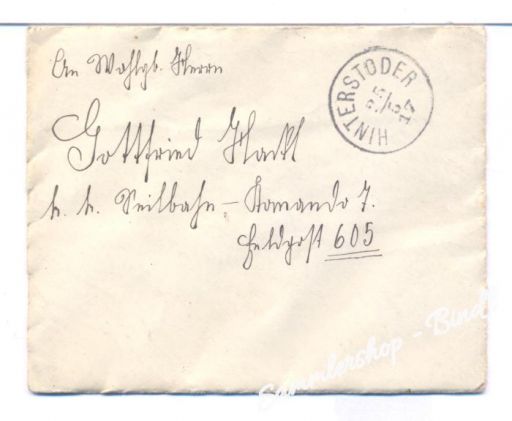 An Wohlgb. Herrn
HINTERSTODER
25/5
17
Gottfried Hackl
k. k. Seilbahn-Komando 7.
Feldpost 605
Sammlershop - Bindl